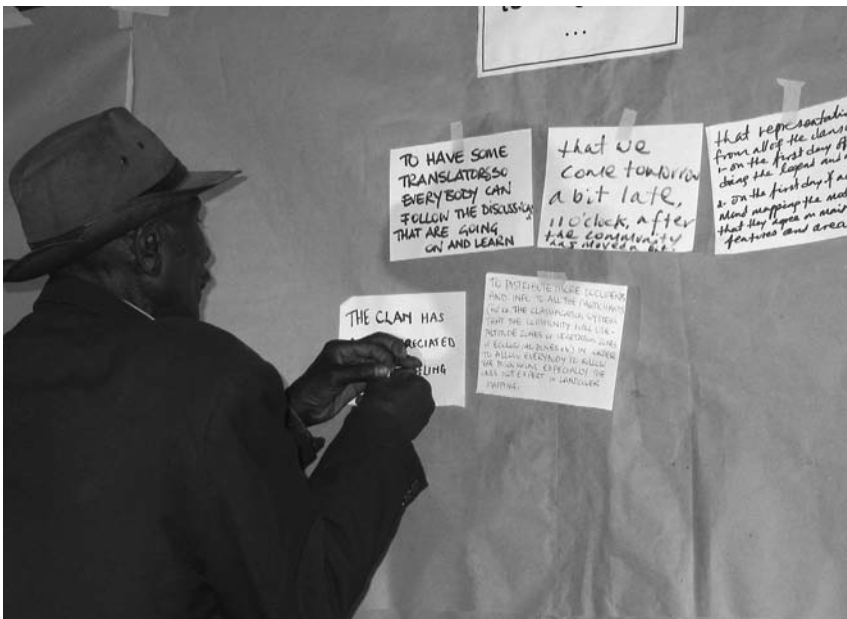 ...
TO HAVE SOME
TRANSLATORS SO
EVERYBODY CAN
FOLLOW THE DISCUSSIONS
THAT ARE GOING
ON AND LEARN
that we
come tomorrow
a bit late,
11 o'clock, after
the community
has moved a bit.
that
from all of the
1- on the first day of
doing the legend and
2- on the first day of
mind mapping the
that they agree on
features and area
THE CLAN HAS
TO DISTRIBUTE MORE DOCUMENTS
AND INFO TO ALL THE PARTICIPANTS
THE CLASSIFICATION SYSTEM
THAT THE COMMUNITY WILL USE -
ALTITUDE ZONES OR VEGETATION ZONES
OR ECOLOGICAL ZONES IN ORDER
TO ALLOW EVERYBODY TO FOLLOW
THE DISCUSSIONS ESPECIALLY THE
ONES NOT EXPERT IN LANDCOVER
MAPPING.